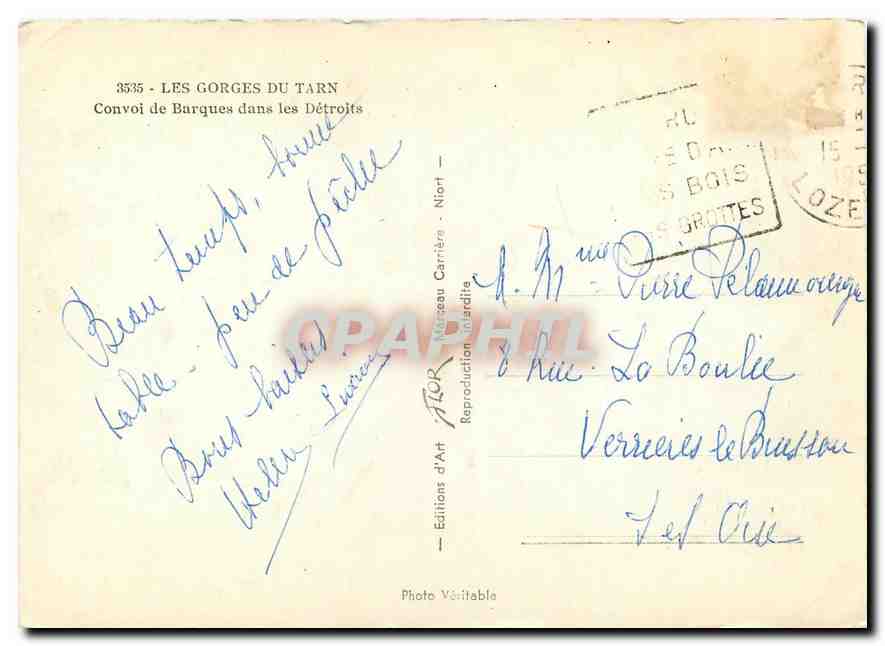 3535 - LES GORGES DU TARN
Convoi de Barques dans les Détroits
Beau temps, bonne
table - peu de pêche
Bons baisers
Helen Lucien
— Editions d'Art FLOR Marceau Carrière - Niort —
Reproduction interdite
RU
S BOIS
S GROTTES
15
195
LOZE
M. Mme Pierre
8 Rue La Boulie
Verrieres le Buisson
S et Oise
Photo Véritable
CPAPHIL